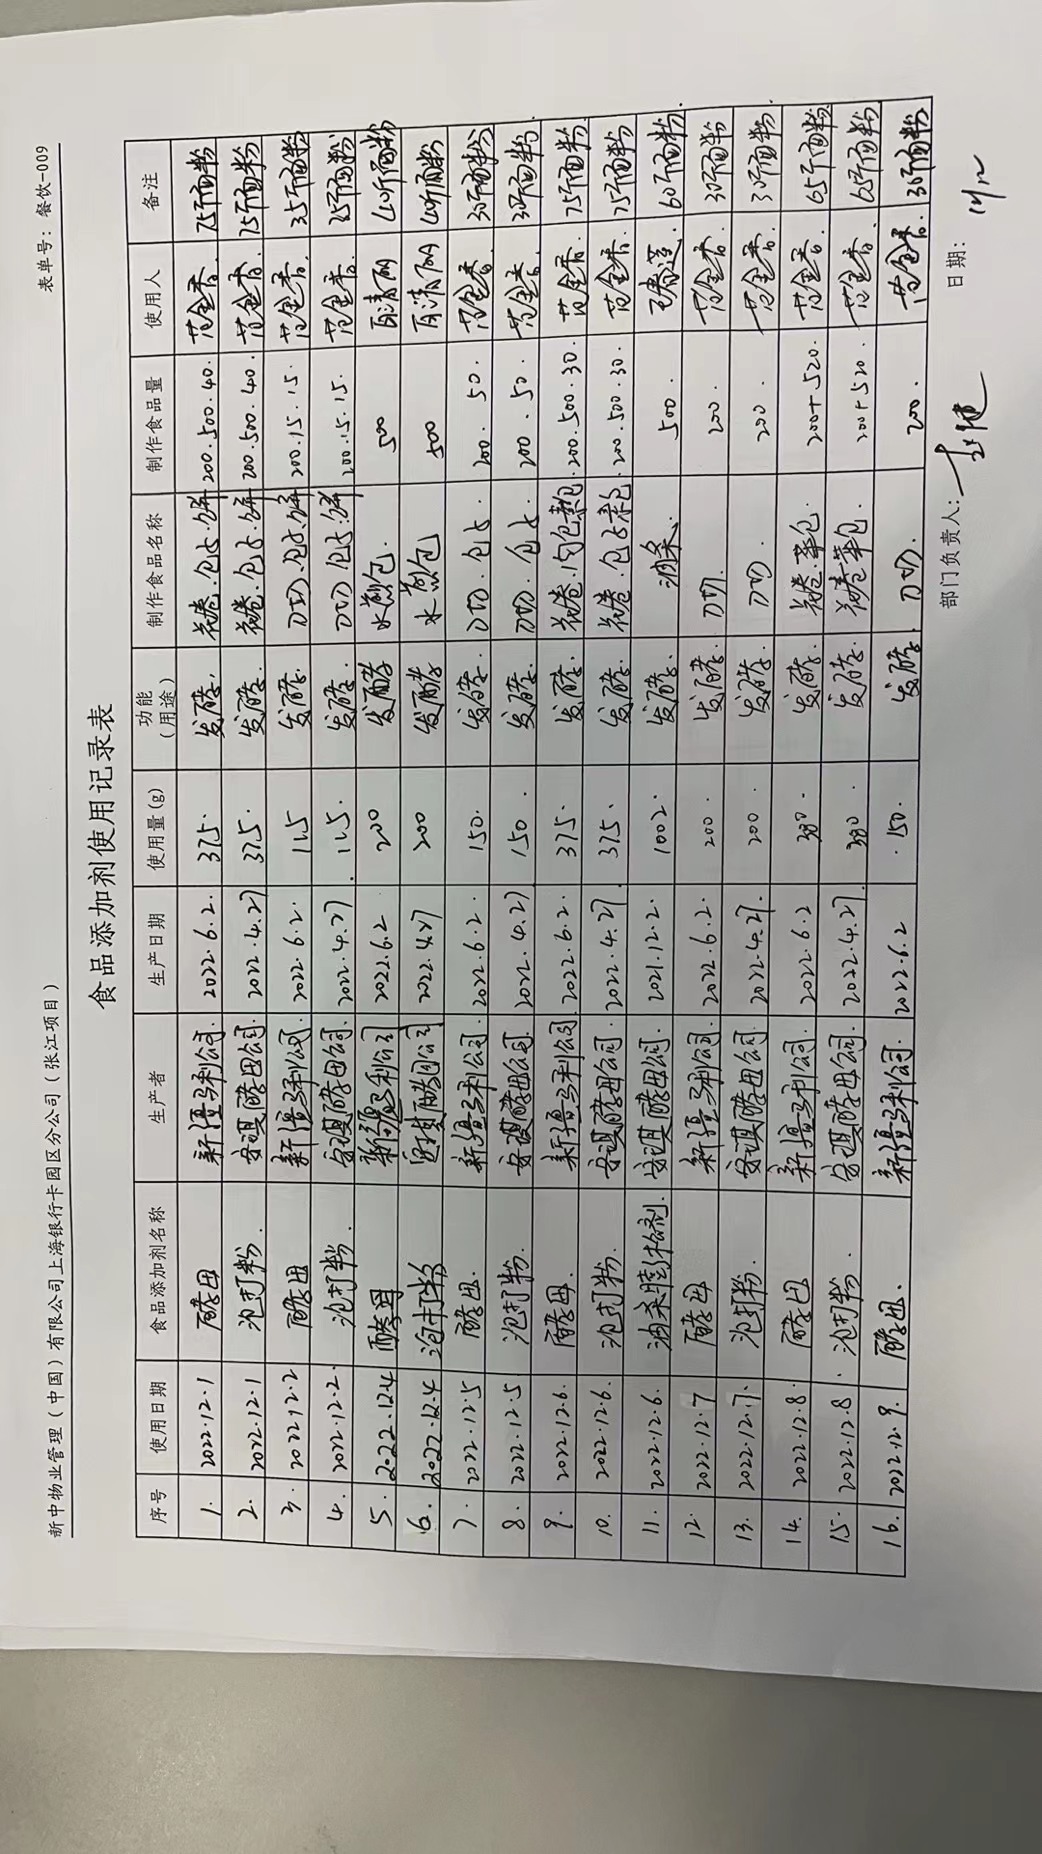 新中物业管理（中国）有限公司上海银行卡园区分公司（张江项目） 表单号：餐饮-009
食品添加剂使用记录表
序号 使用日期 食品添加剂名称 生产者 生产日期 使用量(g) 功能（用途） 制作食品名称 制作食品量 使用人 备注
1. 2022.12.1 酵母 新疆马利公司. 2022.6.2. 375. 发酵. 花卷.包子.饼 200.500.40. 范金香. 75斤面粉
2. 2022.12.1 泡打粉. 安琪酵母公司. 2022.4.27 375. 发酵. 花卷.包子.饼 200.500.40. 范金香. 75斤面粉
3. 2022.12.2 酵母 新疆马利公司. 2022.6.2. 115 发酵. 刀切.包子.饼 200.15.15. 范金香. 35斤面粉
4. 2022.12.2. 泡打粉. 安琪酵母公司. 2022.4.27. 115. 发酵. 刀切.包子.饼 200.15.15. 范金香. 35斤面粉
5. 2022.12.4 酵母 新疆马利公司 2022.6.2 200 发酵 水煎包. 500 40斤面粉
6. 2022.12.4 泡打粉 酵母公司 2022.4.27 200 发酵 水煎包 500 40斤面粉.
7. 2022.12.5 酵母. 新疆马利公司. 2022.6.2. 150. 发酵. 刀切.包子. 200. 50. 范金香. 30斤面粉
8. 2022.12.5. 泡打粉 安琪酵母公司. 2022.4.27 150. 发酵. 刀切.包子. 200.50. 范金香. 30斤面粉.
9. 2022.12.6. 酵母. 新疆马利公司. 2022.6.2. 375. 发酵. 花卷.肉包素包. 200.500.30. 范金香 75斤面粉.
10. 2022.12.6. 泡打粉. 安琪酵母公司 2022.4.27. 375. 发酵. 花卷.包子素包. 200.500.30. 范金香 75斤面粉.
11. 2022.12.6. 油条膨松剂. 安琪酵母公司. 2021.12.2. 1002. 发酵. 油条. 500. 60斤面粉.
12. 2022.12.7 酵母 新疆马利公司. 2022.6.2. 200. 发酵. 刀切. 200 范金香. 30斤面粉
13. 2022.12.7. 泡打粉. 安琪酵母公司. 2022.4.27. 200 发酵. 刀切. 200. 范金香. 30斤面粉.
14. 2022.12.8. 酵母 新疆马利公司. 2022.6.2 380. 发酵. 花卷.荤包. 200+520. 范金香. 65斤面粉
15. 2022.12.8. 泡打粉. 安琪酵母公司. 2022.4.27. 380. 发酵. 花卷荤包. 200+520 范金香. 65斤面粉.
16. 2022.12.9. 酵母. 新疆马利公司. 2022.6.2 150. 发酵. 刀切. 200. 范金香. 30斤面粉
部门负责人： 日期：